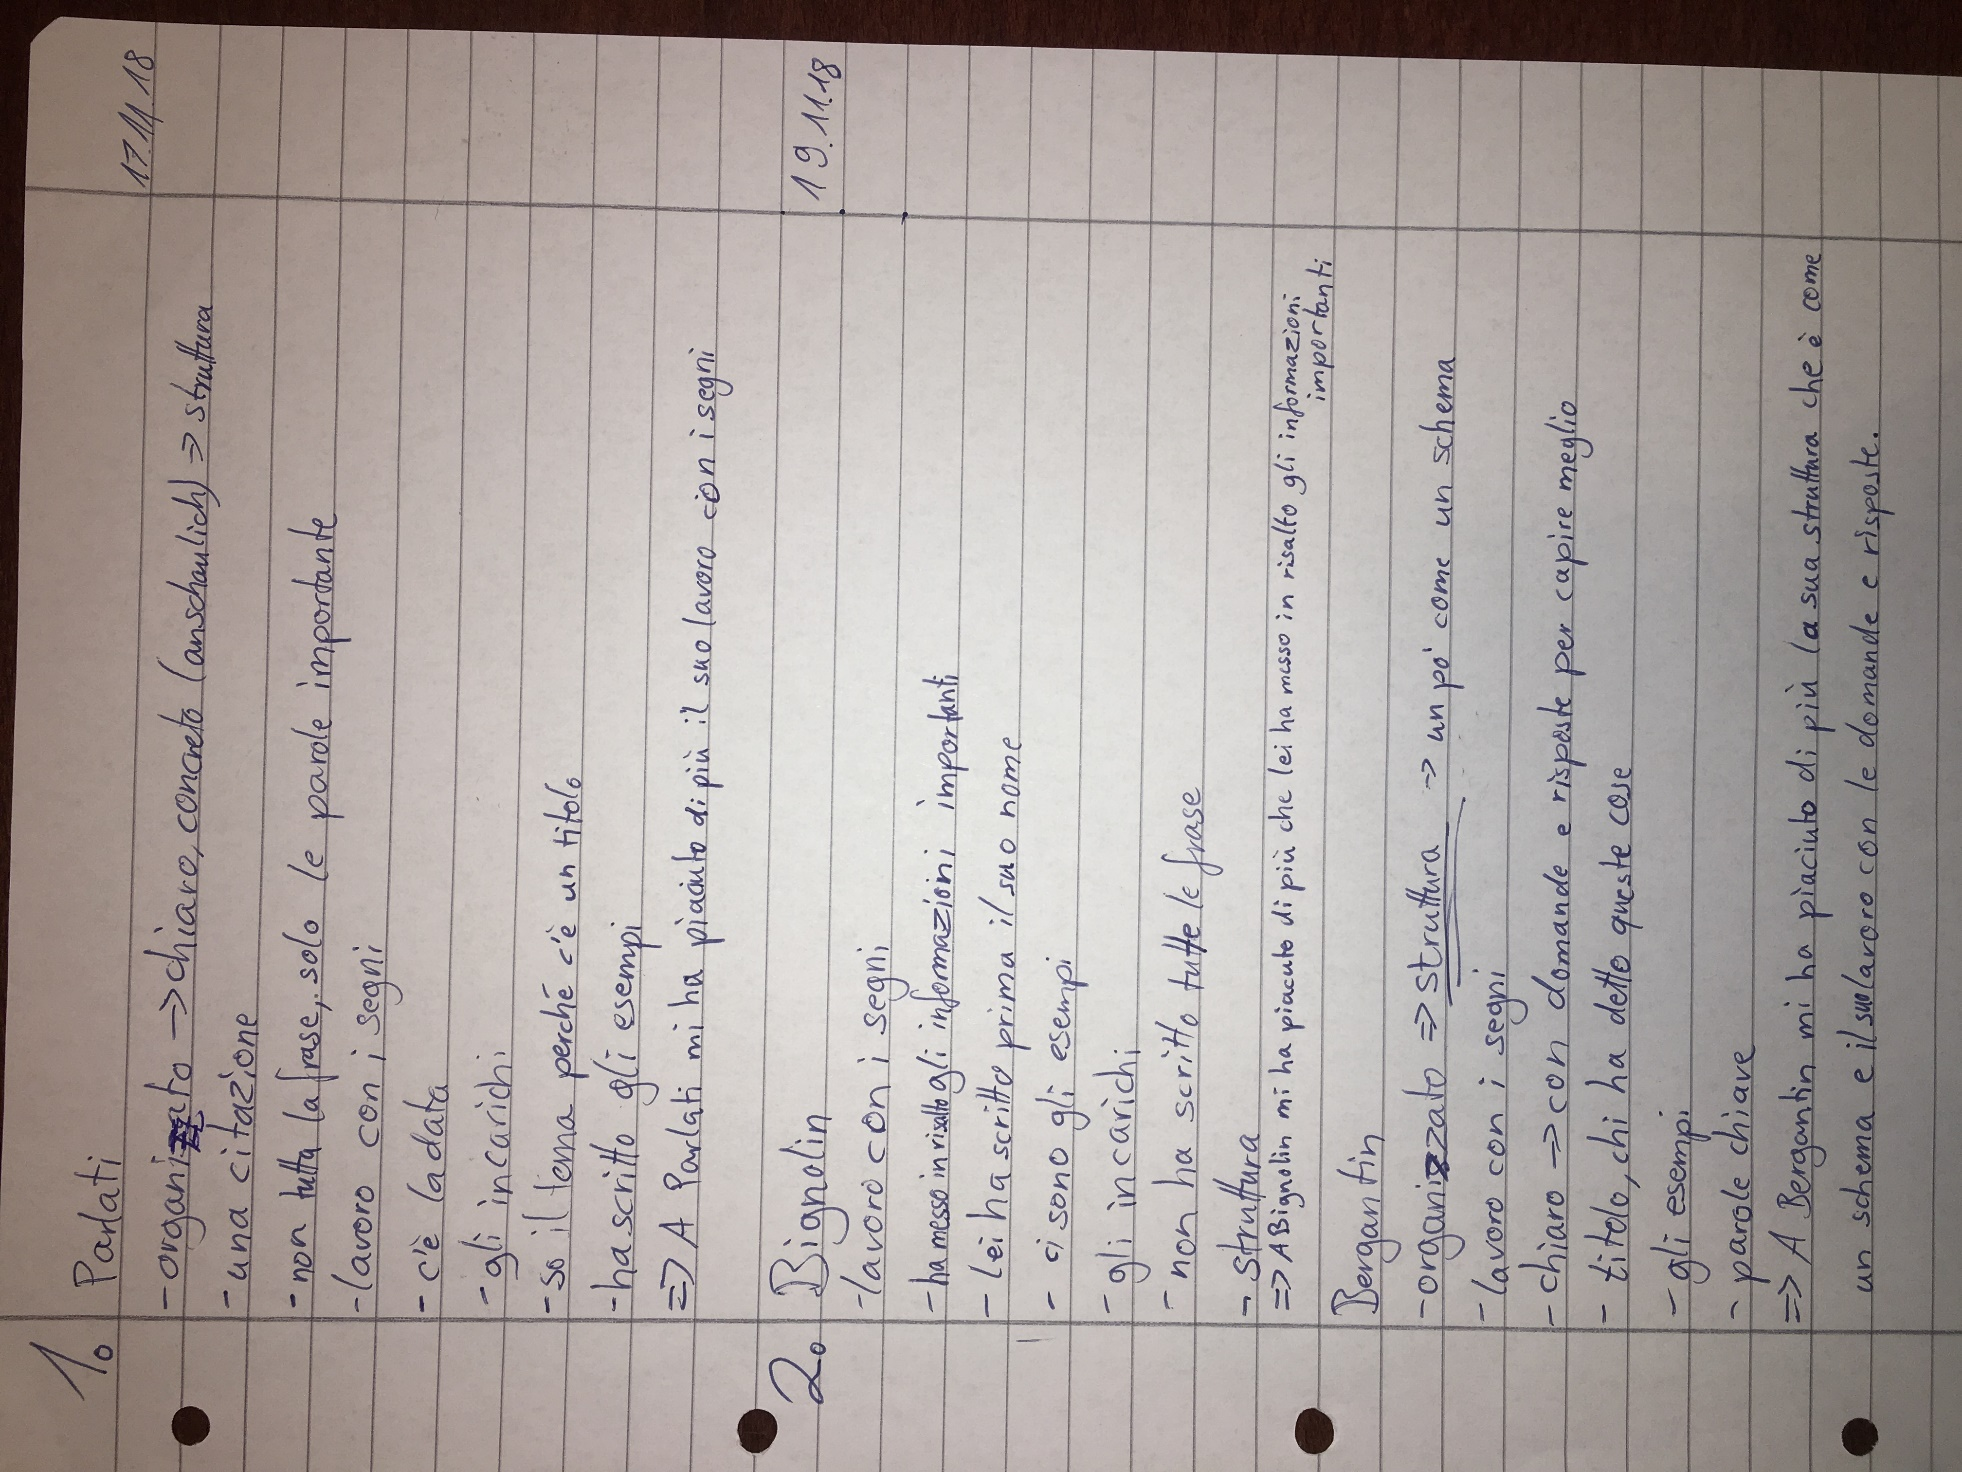 17.11.18
1. Parlati
- organizzato -> chiaro, concreto (anschaulich) => struttura
- una citazione
- non tutta la frase, solo le parole importante
- lavoro con i segni
- c'è la data
- gli incarichi
- so il tema perché c'è un titolo
- ha scritto gli esempi
=> A Parlati mi ha piaciuto di più il suo lavoro con i segni
19.11.18
2. Bignolin
- lavoro con i segni
- ha messo in risalto gli informazioni importanti
- lei ha scritto prima il suo nome
- ci sono gli esempi
- gli incarichi
- non ha scritto tutte le frase
- struttura
=> A Bignolin mi ha piacuto di più che lei ha messo in risalto gli informazioni
importanti
Bergantin
- organizzato => struttura -> un po' come un schema
- lavoro con i segni
- chiaro -> con domande e risposte per capire meglio
- titolo, chi ha detto queste cose
- gli esempi
- parole chiave
=> A Bergantin mi ha piaciuto di più la sua struttura che è come
un schema e il suo lavoro con le domande e risposte.